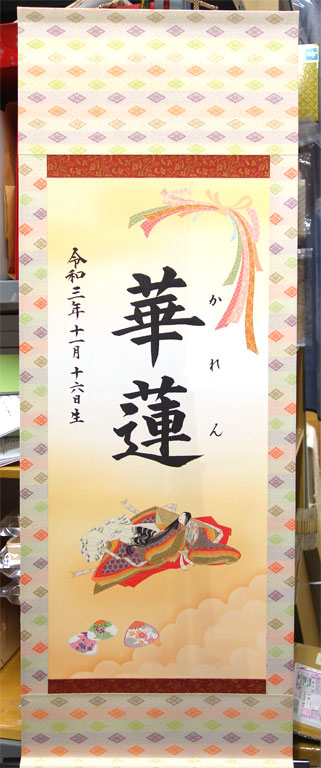 かれん
華蓮
令和三年十一月十六日生